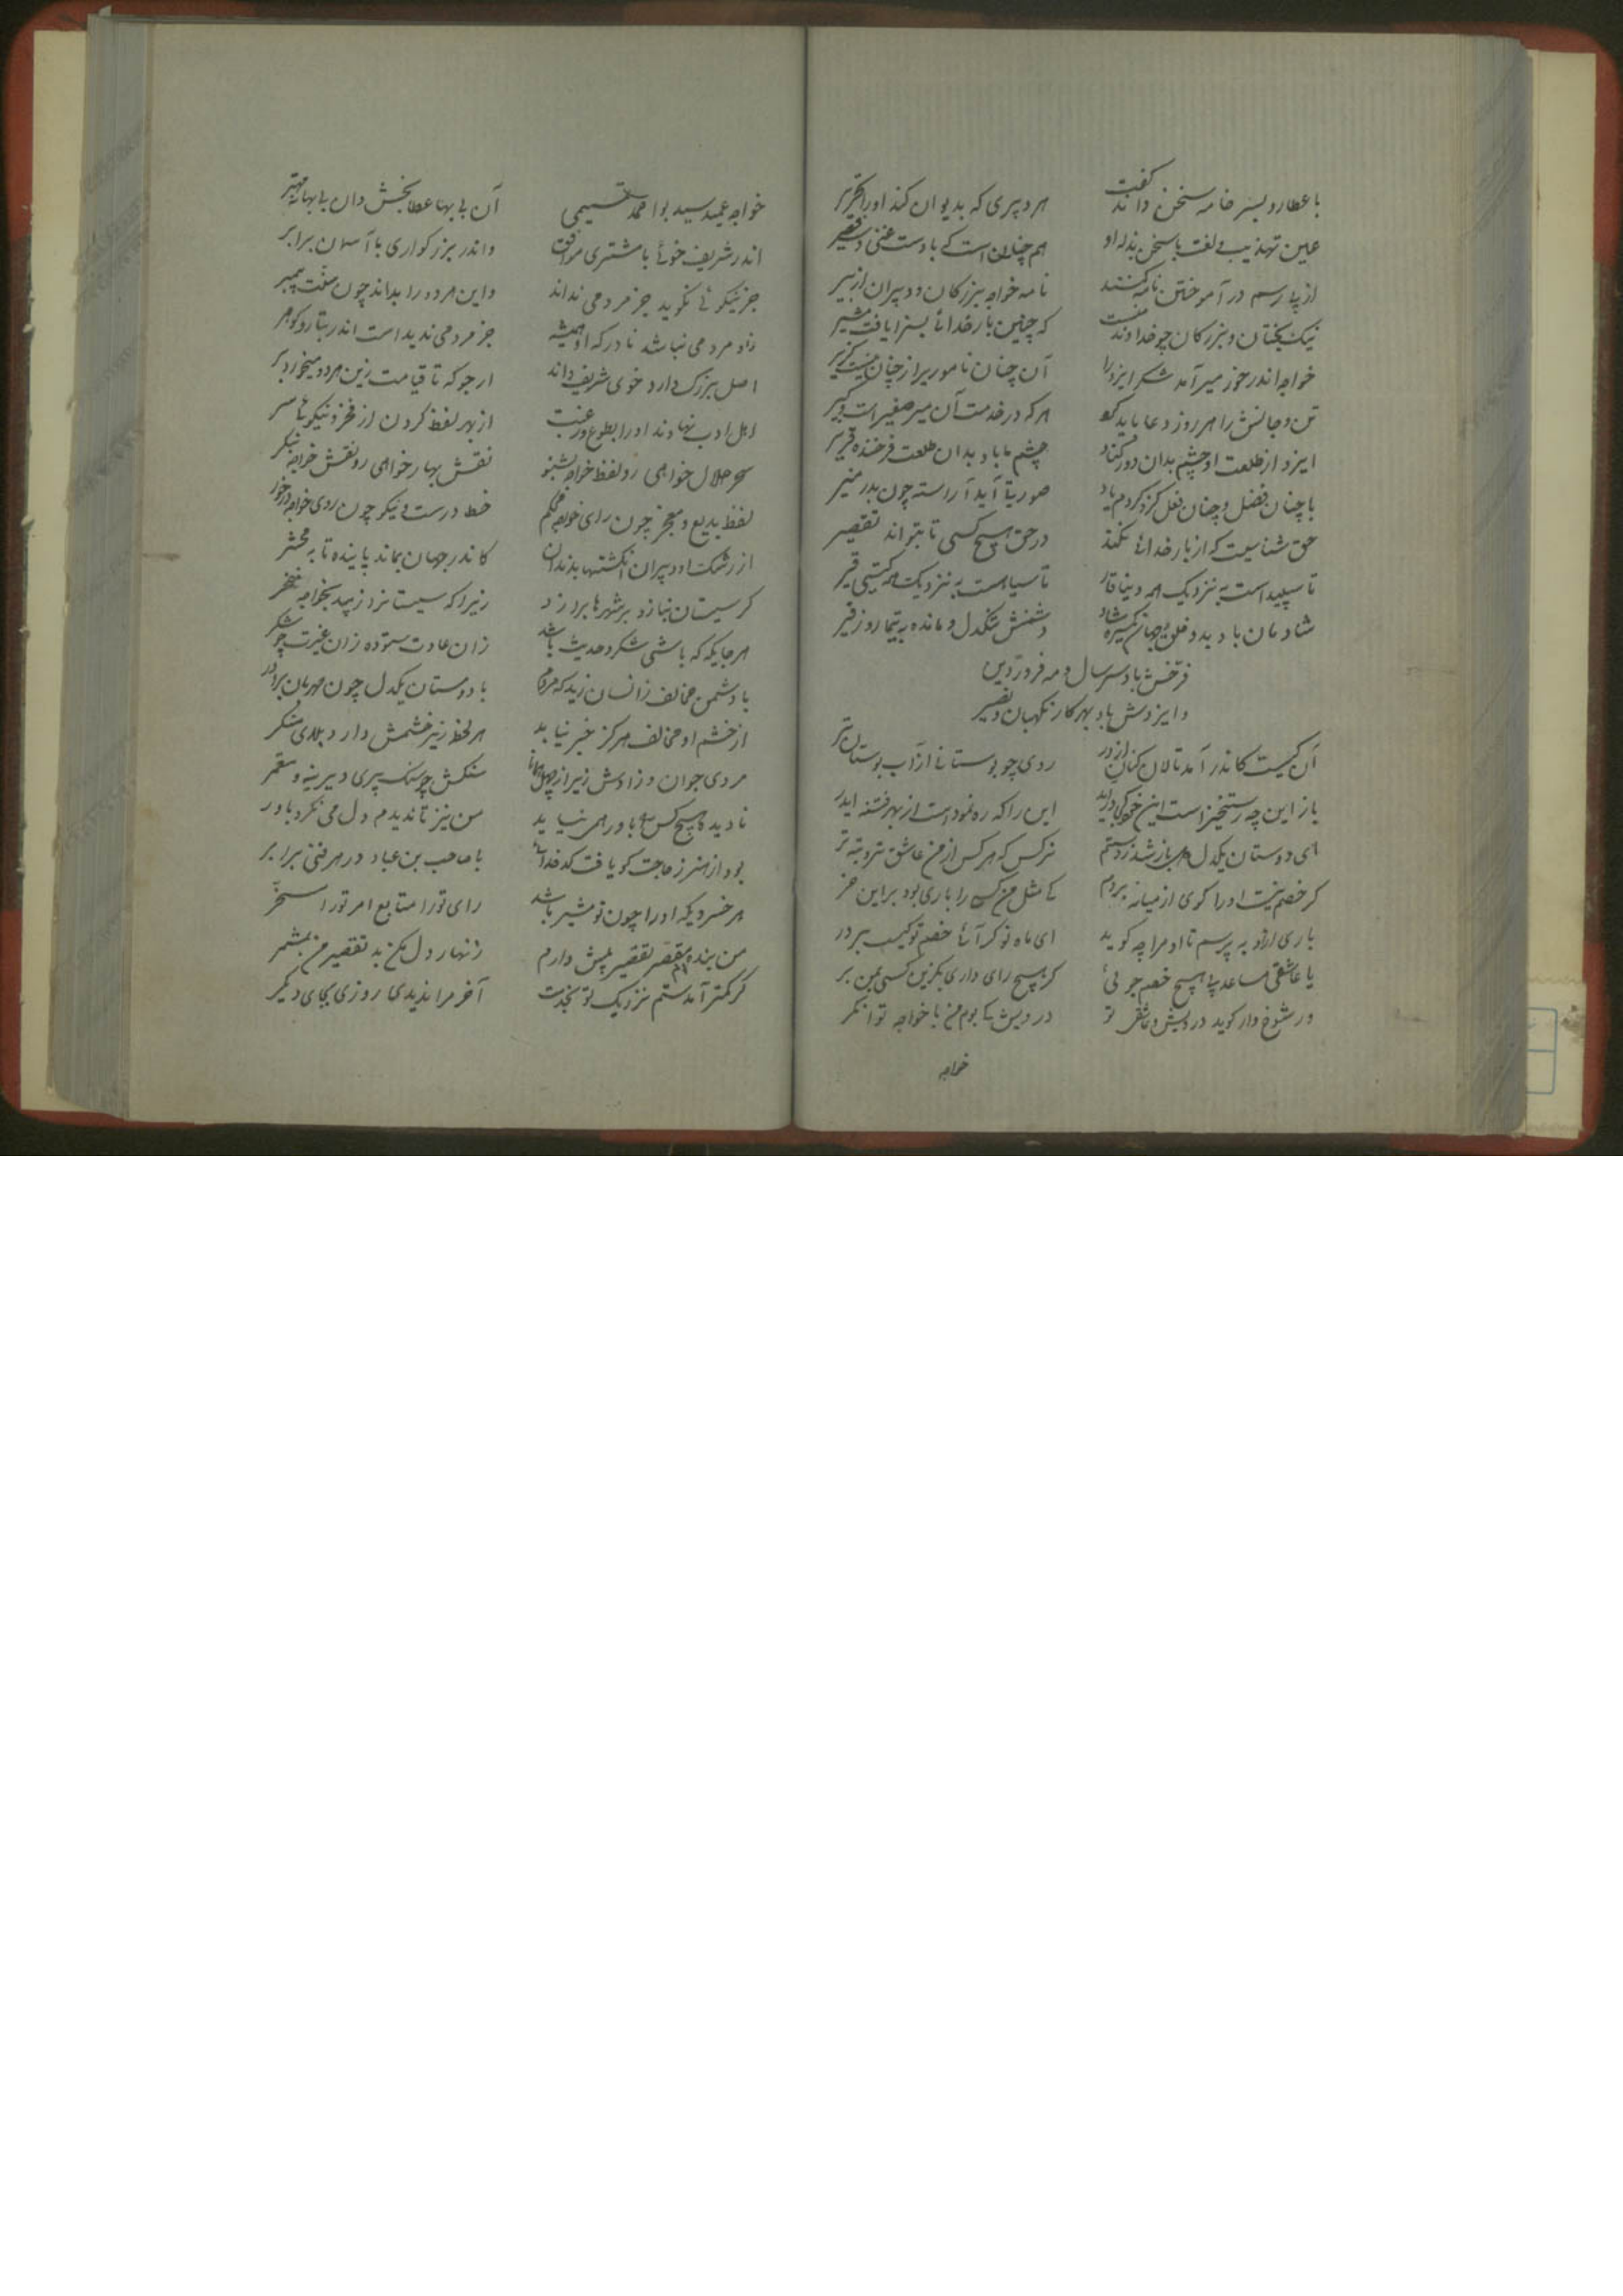 با عطارد بسر خامه سخن داند گفت
هر دبیری که بدیوان کند او را تحریر
عین تهذیب لغت با سخن بذله او
هم چنان است که با دست غنی دست فقیر
از پی رسم در آموختن نامه کنند
نامه خواجه بزرگان و دبیران از بر
نیک بختان و بزرگان چو خداوند منست
که چنین بار خدائی بسزا یافت مشیر
خواجه اندر خور میر آمد شکر ایزد را
آن چنان نامور را از چنان نیست گزیر
تن و جانش را هر روز دعا باید کرد
هر که در خدمت آن میر صغیر است و کبیر
ایزد از طلعت او چشم بدان دور کناد
چشم ما باد بدان طلعت فرخنده قریر
با چنان فضل و چنان فعل کزو کردم یاد
صوریا آید آراسته چون بدر منیر
حق شناسیت که از بار خدائی نکند
در حق هیچ کسی تا بتواند تقصیر
تا سپید است به نزدیک همه دنیا قار
تا سیاهست به نزدیک همه گیتی قیر
شادمان باد بدو خلق جهان یکسره شاد
دشمنش تنگدل و مانده به تیمار و زفیر
فرخش باد سر سال و مه فروردین
و ایزدش باد بهر کار نگهبان و نصیر
آن کیست کاندر آمد نالان کنان از در
روی چو بوستانی از آب بوستان تر
باز این چه رستخیز است این خوی کی دراید
این را که ره نمود است از بهر فتنه ایدر
ای دوستان یکدل دل باز شد ز دستم
نرگس که هر کس از من عاشق تر و بتر
گر خصم نیست او را گوی از میانه بردم
کی مثل من کسی را یاری بود بر این خر
باری ازو به پرسم تا او مرا چه گوید
ای ماه نو کرآئی خصم تو کیست بر در
یا عاشقی مساعد یا هیچ خصم جوئی
گر هیچ رای داری بگزین کسی بمن بر
ور شوخ وار گوید درویش و عاشقی تو
درویش کی بوم من با خواجه توانگر
خواجه
خواجه عمید سید بو احمد تمیمی
آن بی بها عطا بخش وان بی بهانه مهتر
اندر شریف خوئی با مشتری موافق
و اندر بزرگواری با آسمان برابر
جز نیکوئی نگوید جز مردمی نداند
و این هر دو را بداند چون سنت پیمبر
زاد مردمی نباشد نادر که او همیشه
جز مردمی ندید است اندر تبار و گوهر
اصل بزرگ دارد خوی شریف داند
ارجو که تا قیامت زین هر دو میخورد بر
اهل ادب نهادند او را بطوع و رغبت
از بهر لفظ کردن از فخر و نیکوئی سر
سحر حلال خواهی رو لفظ خواجه بشنو
نقش بهار خواهی رو نقش خواجه بنگر
لفظ بدیع و معجز چون رای خواجه محکم
خط درست و نیکو چون روی خواجه درخور
از رشک او دبیران انگشتها بدندان
کاندر جهان بماند پاینده تا به محشر
گر سیستان بنازد بر شهرها برازد
زیرا که سیستان را زیبد بخواجه مفخر
هر جایگه که باشی شکر و حدیث باشد
زان عادت ستوده زان غیرت چو شکر
با دشمن مخالف زانسان زید که مردم
با دوستان یکدل چون مهربان برادر
از خشم او مخالف هرگز خبر نیابد
هر لحظه زیر خشمش دارد بلای منکر
مردی جوان و زادش زیر از چهل همانا
سنگش چو سنگ پیری دیرینه و معمر
نادیده هیچ کس را باور همی نیاید
من نیز تا ندیدم دل می نکرد باور
بود از هنر ز حاجت کو یافت کدخدائی
با صاحب بن عباد در هر فنی برابر
هر خسرویکه او را چون تو مشیر باشد
رای تو را متابع امر تو را مسخر
من بنده مقصر تقصیر بیش دارم
زنهار دل مکن بد تقصیر من بمشمر
گر کمتر آمدستم نزدیک تو بخدمت
آخر مرا ندیدی روزی بجای دیگر